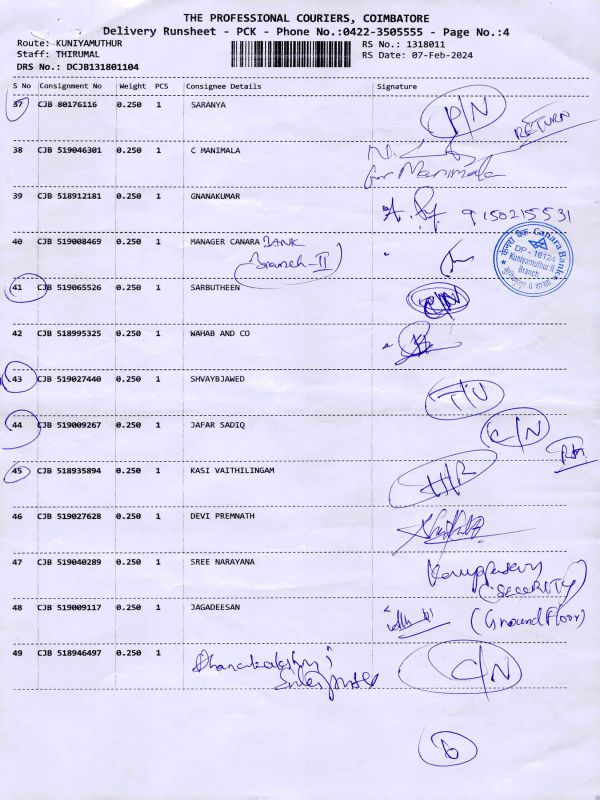 THE PROFESSIONAL COURIERS, COIMBATORE
Delivery Runsheet - PCK - Phone No.:0422-3505555 - Page No.:4
Route: KUNIYAMUTHUR RS No.: 1318011
Staff: THIRUMAL RS Date: 07-Feb-2024
DRS No.: DCJB131801104
S No Consignment No Weight PCS Consignee Details Signature
37 CJB 80176116 0.250 1 SARANYA P/N RETURN
38 CJB 519046301 0.250 1 C MANIMALA
for Manimala
39 CJB 518912181 0.250 1 GNANAKUMAR 9150215531
40 CJB 519008469 0.250 1 MANAGER CANARA BANK
Branch-II
केनरा बैंक Canara Bank
DP - 16124
Kuniyamuthur II
Branch
41 CJB 519065526 0.250 1 SARBUTHEEN
42 CJB 518995325 0.250 1 WAHAB AND CO
43 CJB 519027440 0.250 1 SHVAYBJAWED
44 CJB 519009267 0.250 1 JAFAR SADIQ C/N
45 CJB 518935894 0.250 1 KASI VAITHILINGAM
46 CJB 519027628 0.250 1 DEVI PREMNATH
47 CJB 519040289 0.250 1 SREE NARAYANA
(SECURITY)
48 CJB 519009117 0.250 1 JAGADEESAN (Ground Floor)
49 CJB 518946497 0.250 1 C/N